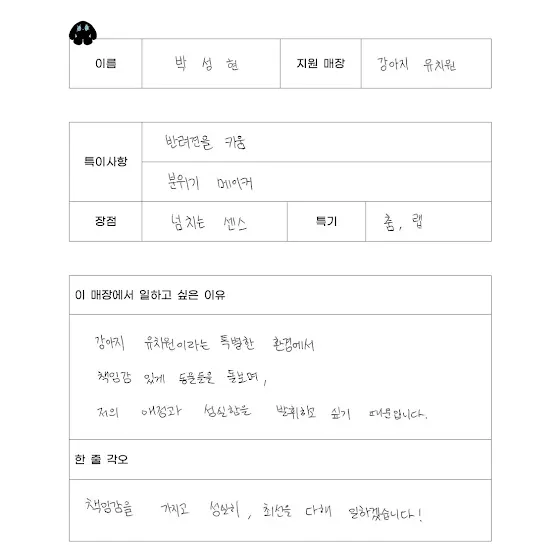 이름 박 성 현 지원 매장 강아지 유치원
특이사항 반려견을 키움
분위기 메이커
장점 넘치는 센스 특기 춤, 랩
이 매장에서 일하고 싶은 이유
강아지 유치원이라는 특별한 환경에서
책임감 있게 동물들을 돌보며,
저의 애정과 성실함을 발휘하고 싶기 때문입니다.
한 줄 각오
책임감을 가지고 성실히, 최선을 다해 일하겠습니다!